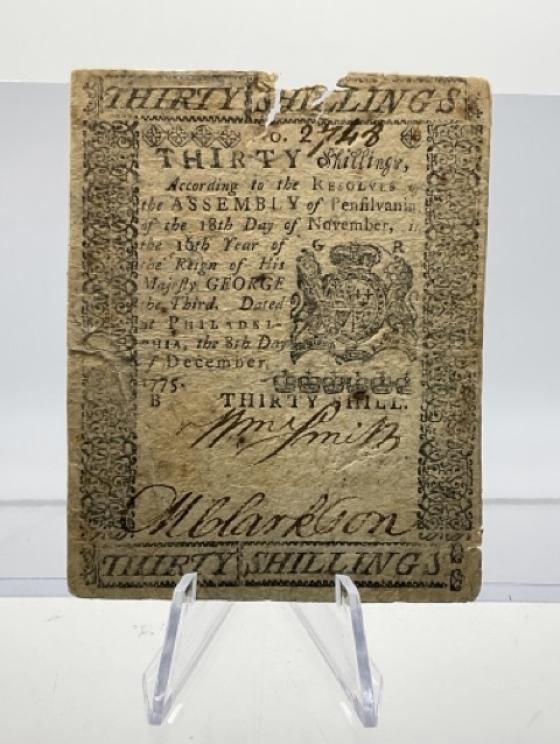 THIRTY SHILLINGS
O. 2748
THIRTY Shillings,
According to the RESOLVES of
the ASSEMBLY of Penſilvania
of the 18th Day of November, i
the 16th Year of
the Reign of His
Majeſty GEORGE
he Third. Dated
at PHILADEL-
PHIA, the 8th Day
f December,
1775.
G R
B THIRTY SHILL.
Wm Smith
M Clarkson
THIRTY SHILLINGS